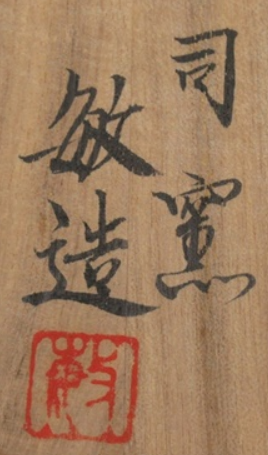 司窯
敏造
敏